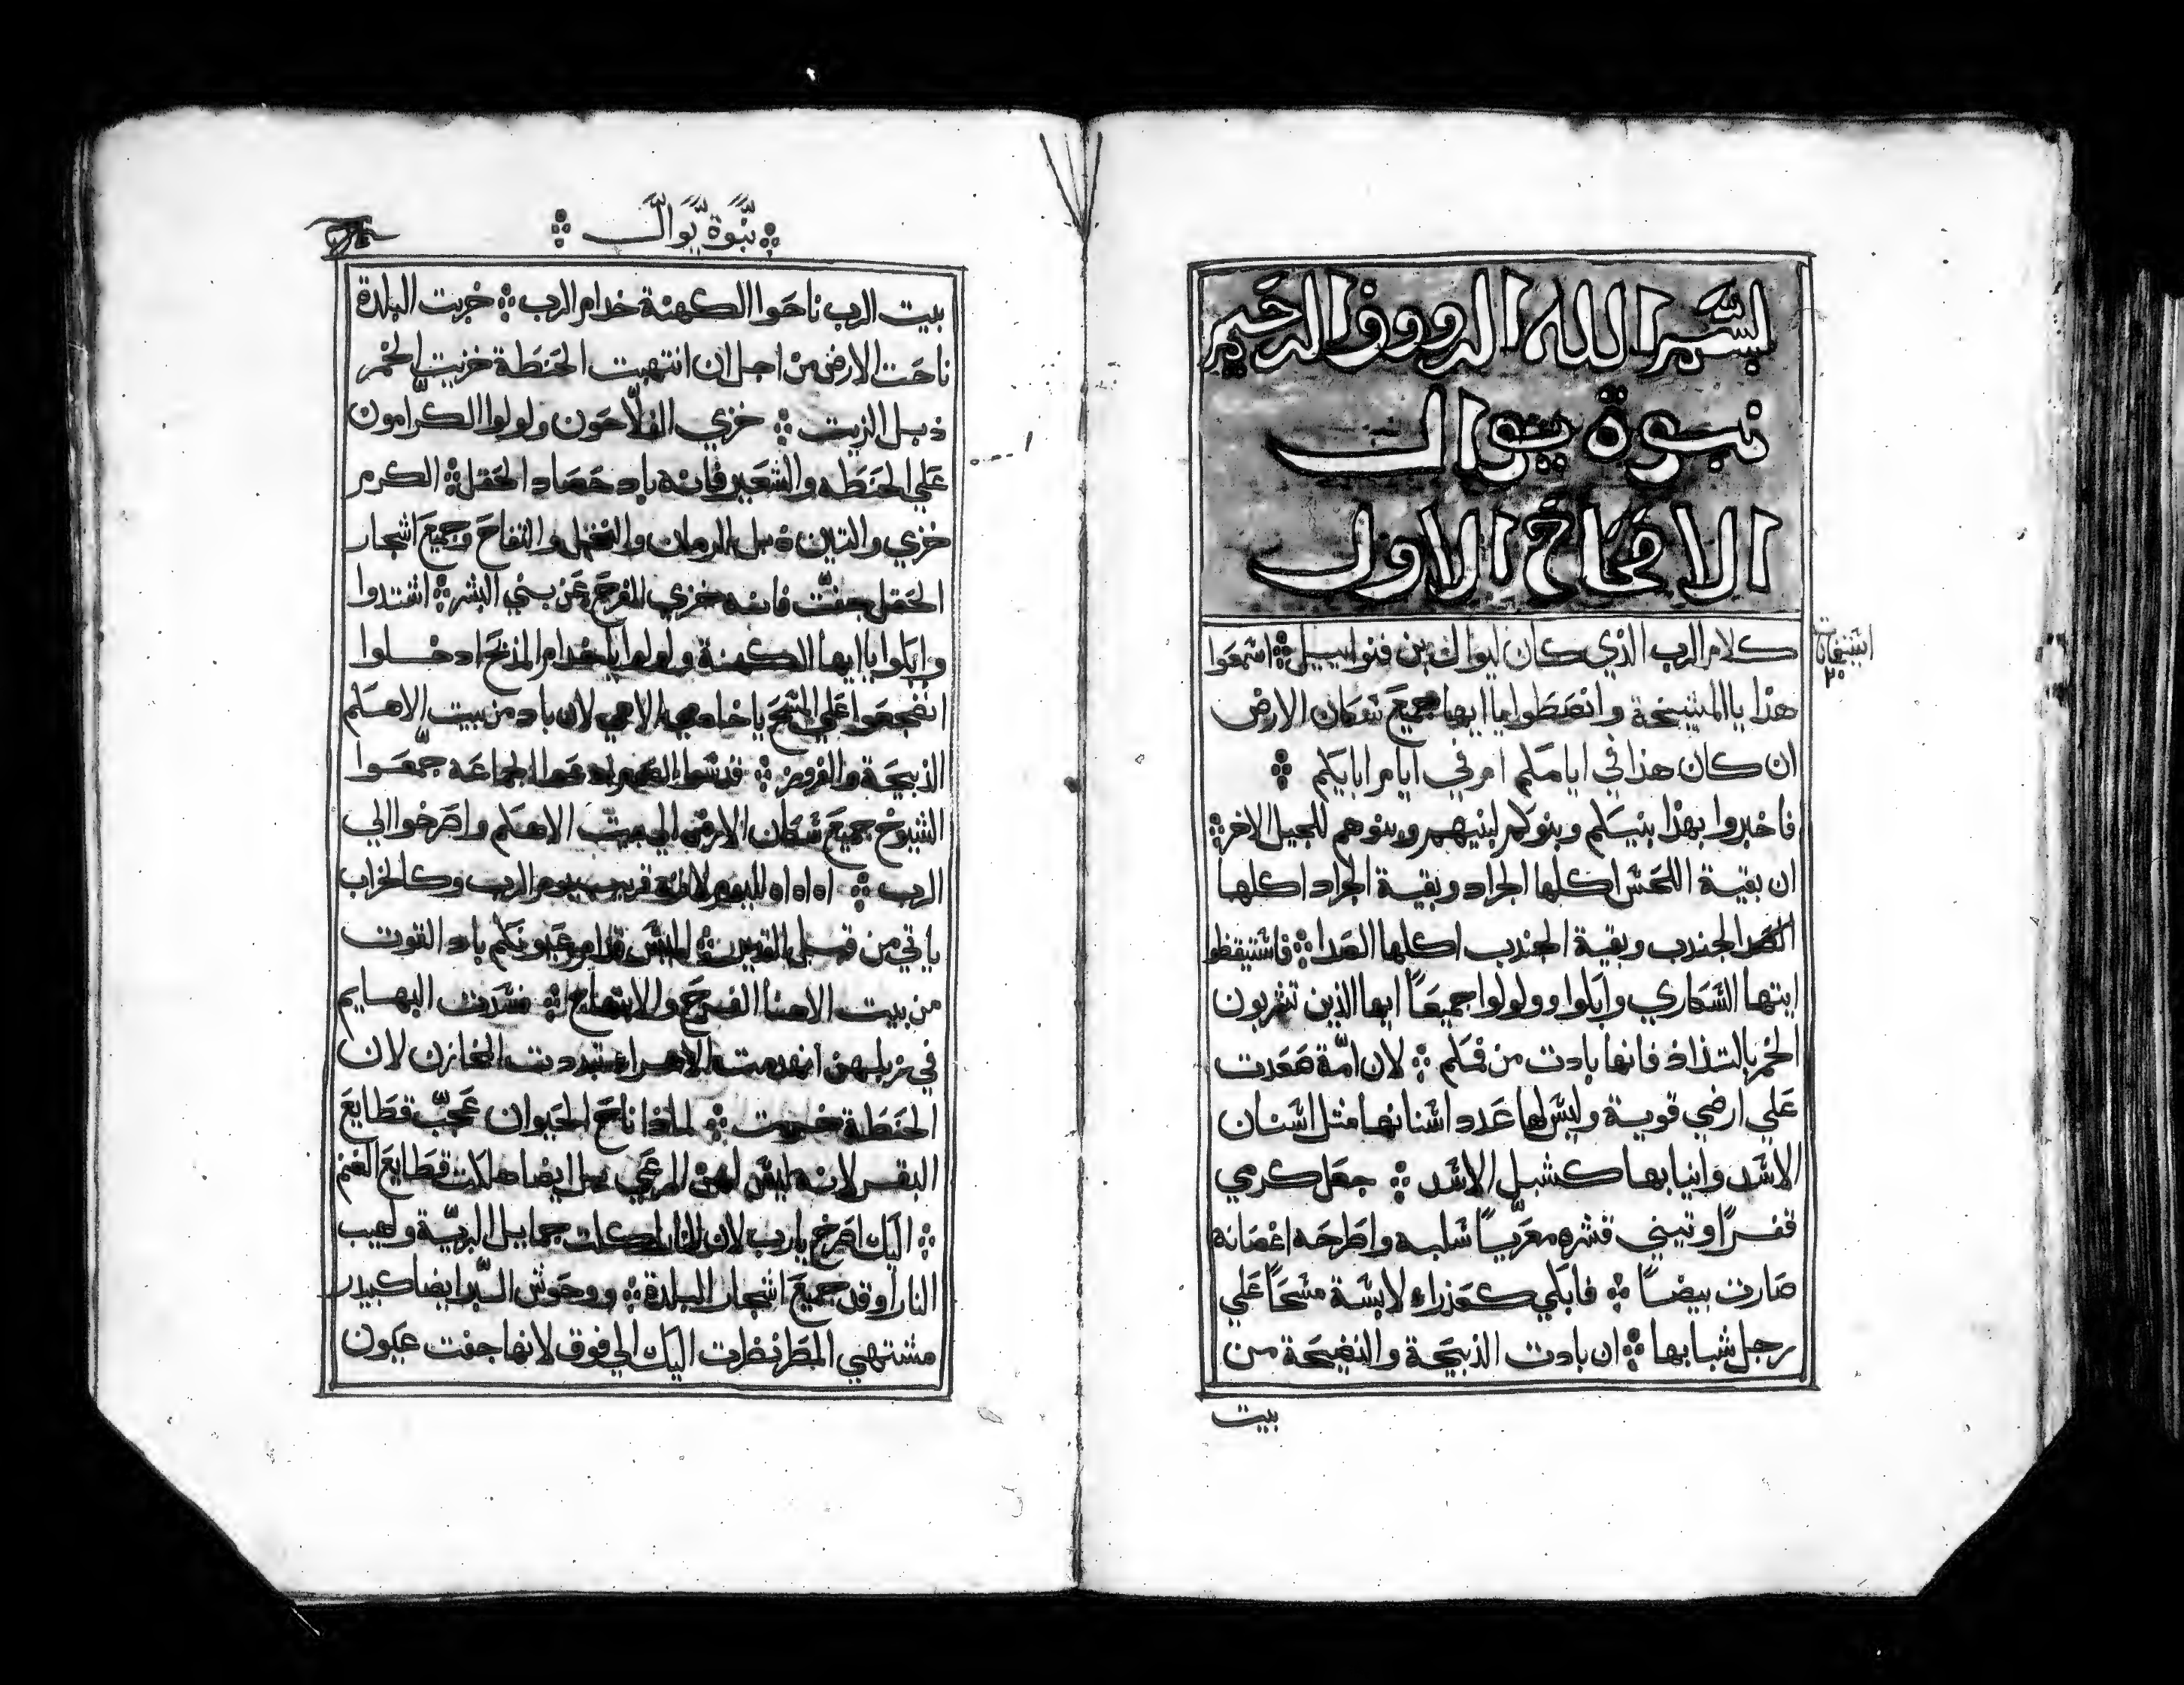 بسم الله الرووف الرحيم
نبوة يوال
الاصحاح الاول
كلام الرب الذي كان ليوال بن فتواييل ۞ اسمعوا
هذا يا المشيخة وانصطوا يا ايها جميع سكان الارض
ان كان هذا في ايامكم ام في ايام ابايكم ۞
فاخبروا بهذا بنيكم وبنوكم لبنيهم وبنوهم للجيل الاخر ۞
ان بقية اللحس اكلها الجراد وبقية الجراد اكلها
الجندب وبقية الجندب اكلها الصدا ۞ فاستيقظو
ايتها السكاري وابكوا وولولوا جميعاً ايها الذين تشربون
الخمر بالتذاذ فانها بادت من فمكم ۞ لان امّة صعدت
علي ارضي قوية وليس لها عدد اسنانها مثل اسنان
الاسد وانيابها كشبل الاسد ۞ جعل كرمي
قفراً وتيني قشره معرياً سلبه واطرحه اغصانه
صارت بيضاً ۞ فابكي كعذراء لابسة مسحاً علي
رجل شبابها ۞ ان بادت الذبيحة والنضيحة من
بيت
نبوة يوال
بيت الرب ناحوا الكهنة خدام الرب ۞ خربت البلدة
ناحت الارض من اجل ان انتهبت الحنطة خزيت الخمر
ذبل الزيت ۞ خزي الفلاحون ولولوا الكرامون
علي الحنطه والشعير فانه باد حصاد الحقل ۞ الكرم
خزي والتين ذبل الرمان والنخل والتفاح وجميع اشجار
الحقل جفت فانه خزي الفرح عن بني البشر ۞ اشتدوا
وابكوا يا ايها الكهنة ولولوا يا خدام المذبح ادخلوا
انضجعوا علي المسح يا خدام الاهي لان باد من بيت الاهكم
الذبيحة والفروض ۞ قدسوا الصوم ادعوا الجماعه جمعوا
الشيوخ جميع سكان الارض الي بيت الاهكم واصرخوا الي
الرب ۞ اه اه اه لليوم لانه قريب يوم الرب وكالخراب
ياتي من قبل القدير ۞ اليس قدام عيونكم باد القوت
من بيت الاهنا الفرح والابتهاج ۞ فسدت البهايم
في زبلهن انهدمت الاهرا تبددت المخازن لان
الحنطة خزيت ۞ لماذا ناح الحيوان عجّب قطايع
البقر لانه ليس لهن المرعي بل ايضا هلكت قطايع الغنم
۞ اليك اصرخ يا رب لان النار اكلت جمايل البرية ولهيب
النار اوقد جميع اشجار البلدة ۞ ووحوش البر ايضا كبيدر
مشتهي المطر نظرت اليك الي فوق لانها جفت عيون